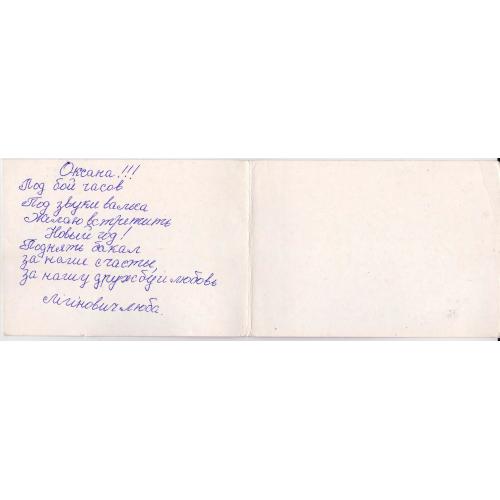 Оксана!!!
Под бой часов
Под звуки вальса
Желаю встретить
Новый год!
Поднять бакал
за наше счастье,
за нашу дружбу и любовь
Люба.